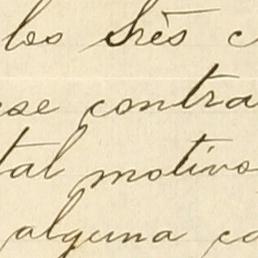 los três c
se contra
tal motivo
alguna co